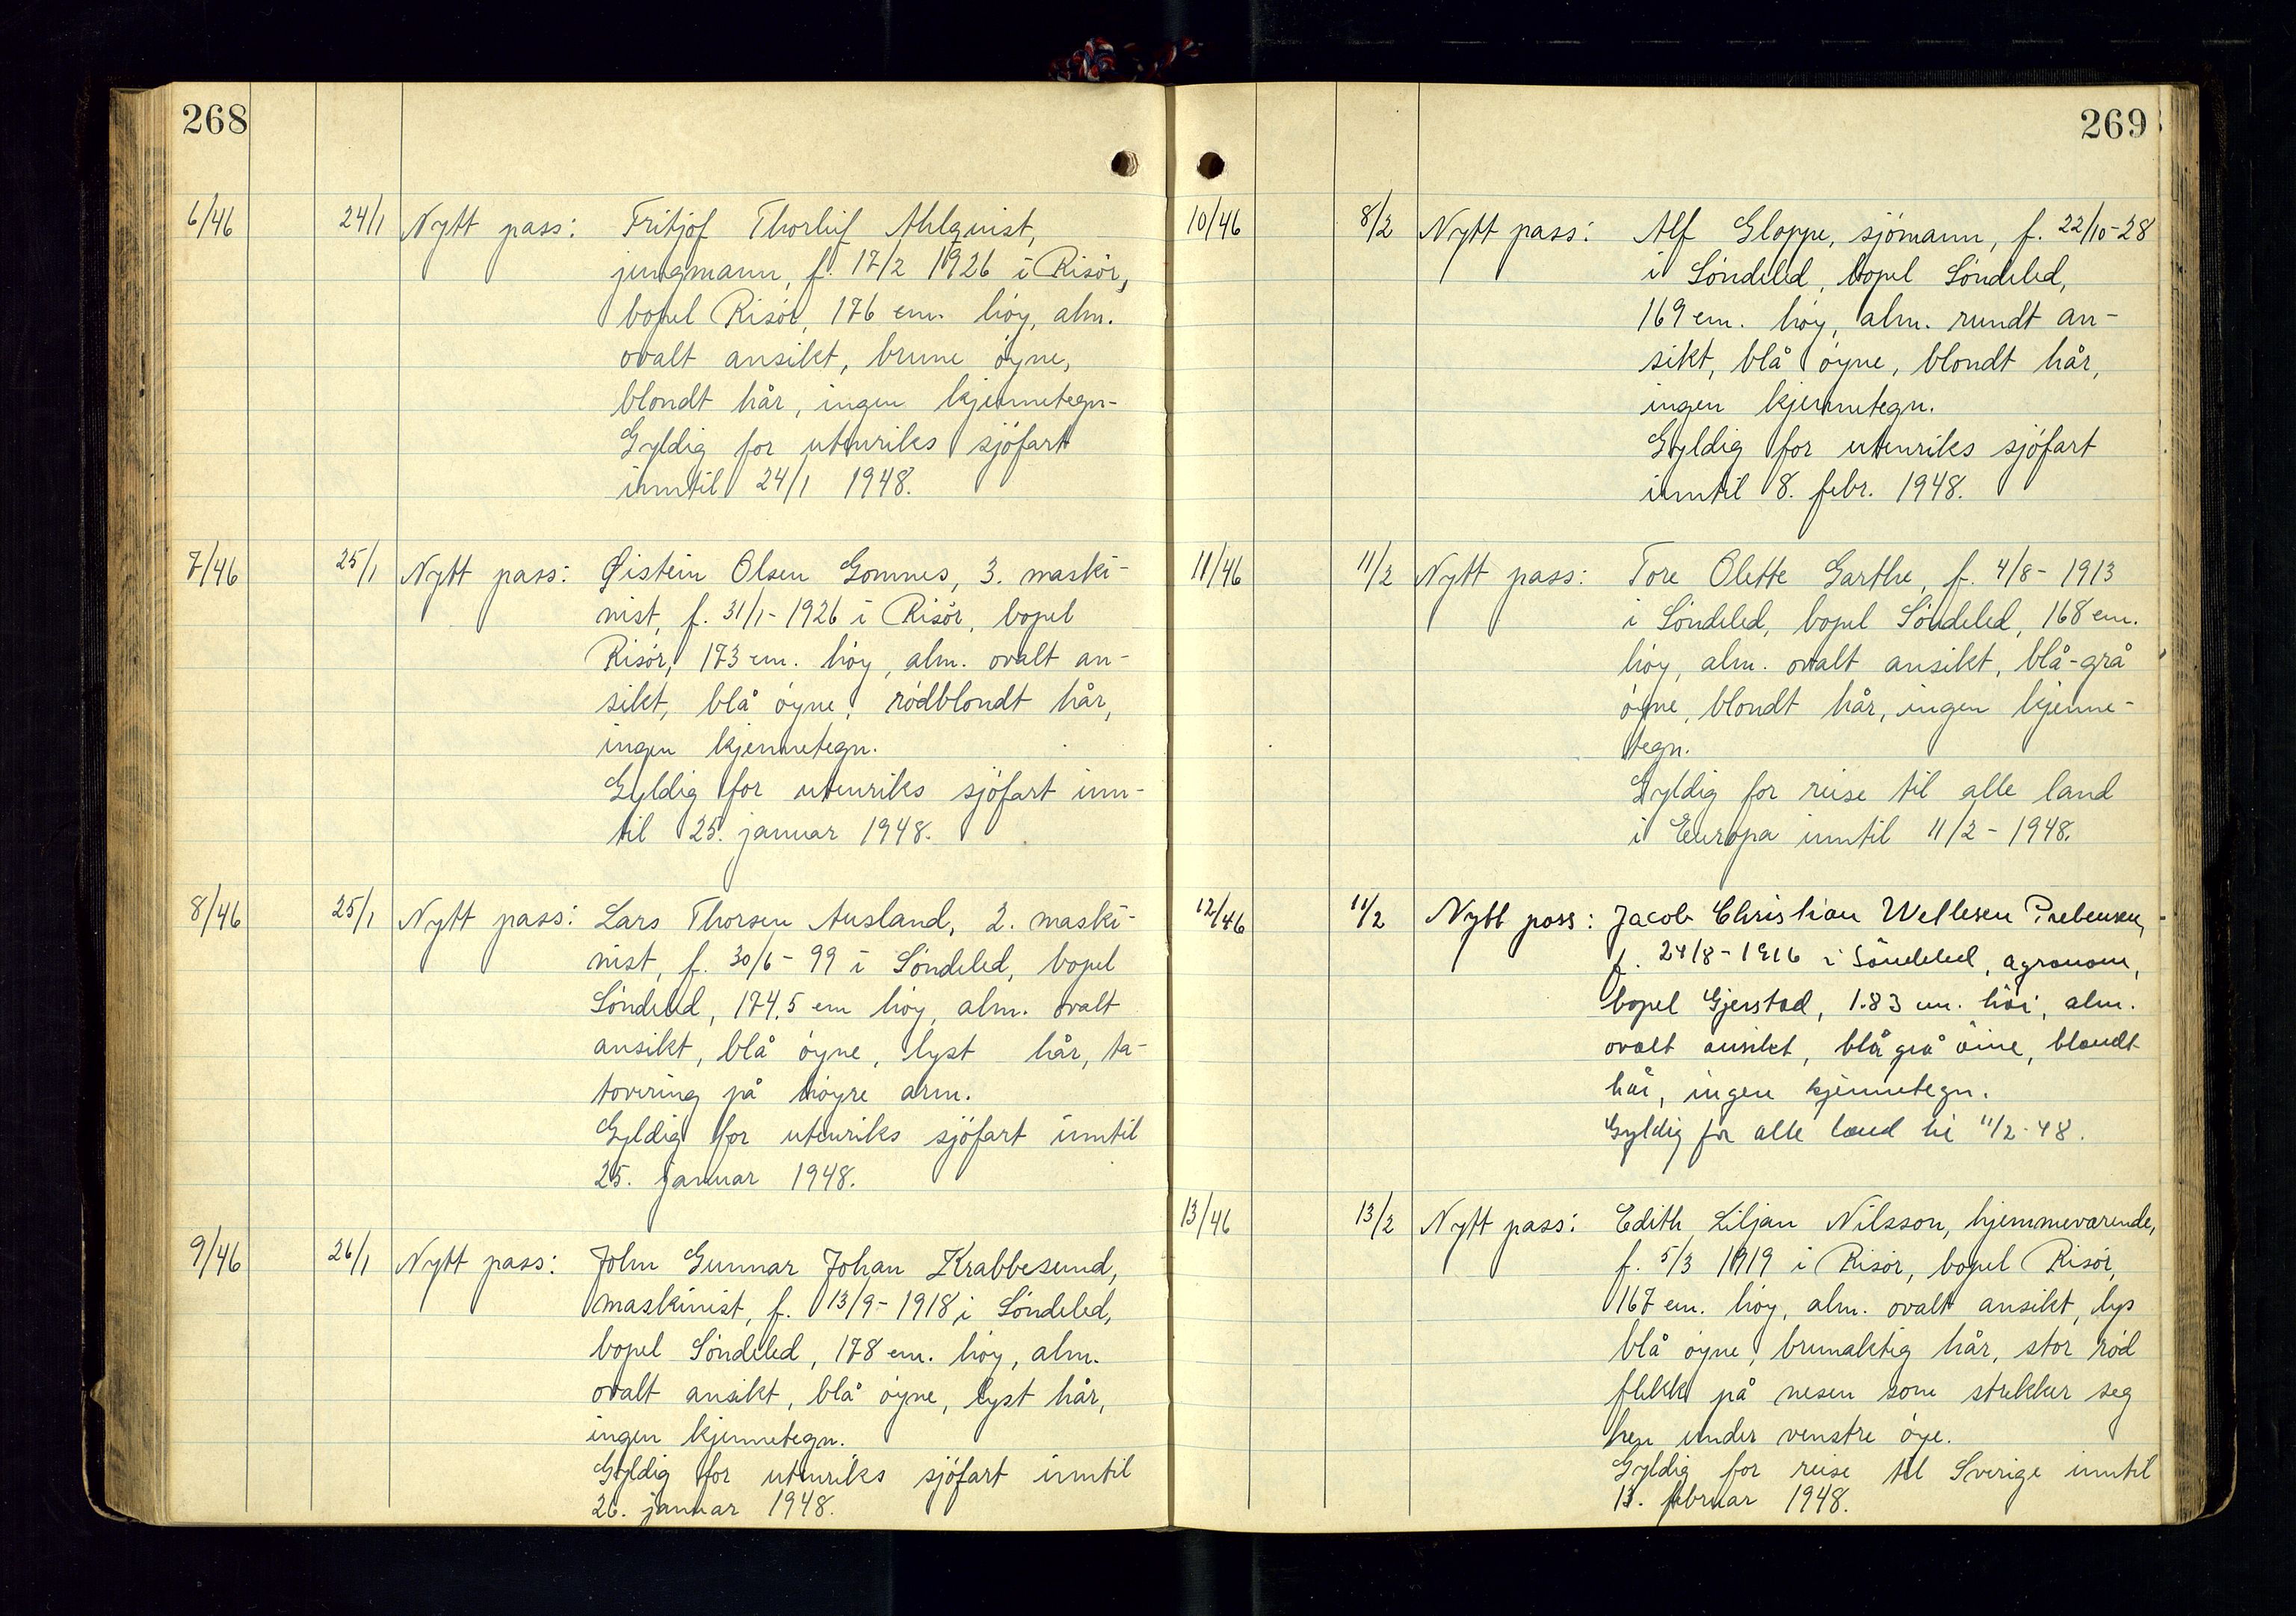 268
6/46 24/1 Nytt pass: Fritjof Thorleif Ahlquist,
jungmann, f. 17/2 1926 i Risör,
bopel Risör, 176 cm. höy, alm.
ovalt ansikt, brune öyne,
blondt hår, ingen kjennetegn-
Gyldig for utenriks sjöfart
inntil 24/1 1948.
7/46 25/1 Nytt pass: Øistein Olsen Gomnes, 3. maski-
nist, f. 31/1-1926 i Risör, bopel
Risör, 173 cm. höy, alm. ovalt an-
sikt, blå öyne, rödblondt hår,
ingen kjennetegn.
Gyldig for utenriks sjöfart inn-
til 25. januar 1948.
8/46 25/1 Nytt pass: Lars Thorsen Ausland, 2. maski-
nist, f. 30/6-99 i Söndeled, bopel
Söndeled, 174,5 cm höy, alm. ovalt
ansikt, blå öyne, lyst hår, ta-
tovering på höyre arm.
Gyldig for utenriks sjöfart inntil
25. januar 1948.
9/46 26/1 Nytt pass: John Gunnar Johan Krabbesund,
maskinist, f. 13/9-1918 i Söndeled,
bopel Söndeled, 178 cm. höy, alm.
ovalt ansikt, blå öyne, lyst hår,
ingen kjennetegn.
Gyldig for utenriks sjöfart inntil
26. januar 1948.
269
10/46 8/2 Nytt pass: Alf Gloppe, sjömann, f. 22/10-28
i Söndeled, bopel Söndeled,
169 cm. höy, alm. rundt an-
sikt, blå öyne, blondt hår,
ingen kjennetegn.
Gyldig for utenriks sjöfart
inntil 8. febr. 1948.
11/46 11/2 Nytt pass: Tore Olette Garthe, f. 4/8-1913
i Söndeled, bopel Söndeled, 168 cm.
höy, alm. ovalt ansikt, blå-grå
öyne, blondt hår, ingen kjenne-
tegn.
Gyldig for reise til alle land
i Europa inntil 11/2-1948.
12/46 11/2 Nytt pass: Jacob Christian Wellesen Prebensen,
f. 24/8-1916 i Söndeled, agronom,
bopel Gjerstad, 1.83 cm. höi, alm.
ovalt ansikt, blå grå öine, blondt
hår, ingen kjennetegn.
Gyldig for alle land til 11/2-48.
13/46 13/2 Nytt pass: Edith Liljan Nilsson, hjemmeværende,
f. 5/3 1919 i Risör, bopel Risör,
167 cm. höy, alm. ovalt ansikt, lys
blå öyne, brunaktig hår, stor röd
flekk på nesen som strekker seg
hen under venstre öye.
Gyldig for reise til Sverige inntil
13. februar 1948.